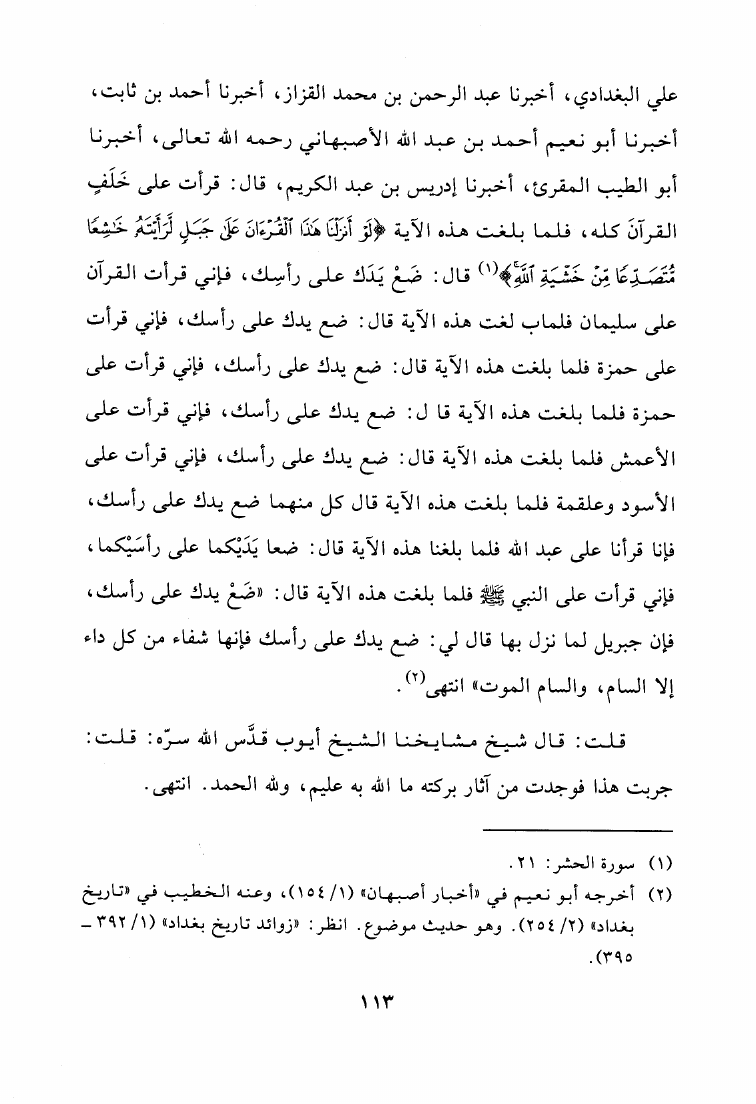 علي البغدادي، أخبرنا عبد الرحمن بن محمد القزاز، أخبرنا أحمد بن ثابت،
أخبرنا أبو نعيم أحمد بن عبد الله الأصبهاني رحمه الله تعالى، أخبرنا
أبو الطيب المقرئ، أخبرنا إدريس بن عبد الكريم، قال: قرأت على خَلَفٍ
القرآنَ كله، فلما بلغت هذه الآية ﴿لَوْ أَنزَلْنَا هَٰذَا ٱلْقُرْءَانَ عَلَىٰ جَبَلٍ لَّرَأَيْتَهُۥ خَٰشِعًا
مُّتَصَدِّعًا مِّنْ خَشْيَةِ ٱللَّهِۚ﴾(١) قال: ضَعْ يَدَك على رأسِك، فإني قرأت القرآن
على سليمان فلماب لغت هذه الآية قال: ضع يدك على رأسك، فإني قرأت
على حمزة فلما بلغت هذه الآية قال: ضع يدك على رأسك، فإني قرأت على
حمزة فلما بلغت هذه الآية قا ل: ضع يدك على رأسك، فإني قرأت على
الأعمش فلما بلغت هذه الآية قال: ضع يدك على رأسك، فإني قرأت على
الأسود وعلقمة فلما بلغت هذه الآية قال كل منهما ضع يدك على رأسك،
فإنا قرأنا على عبد الله فلما بلغنا هذه الآية قال: ضعا يَدَيْكما على رأسَيْكما،
فإني قرأت على النبي ﷺ فلما بلغت هذه الآية قال: «ضَعْ يدك على رأسك،
فإن جبريل لما نزل بها قال لي: ضع يدك على رأسك فإنها شفاء من كل داء
إلا السام، والسام الموت» انتهى(٢).
قلت: قال شيخ مشايخنا الشيخ أيوب قدَّس الله سرّه: قلت:
جربت هذا فوجدت من آثار بركته ما الله به عليم، ولله الحمد. انتهى.
(١) سورة الحشر: ٢١.
(٢) أخرجه أبو نعيم في «أخبار أصبهان» (١/ ١٥٤)، وعنه الخطيب في «تاريخ
بغداد» (٢/ ٢٥٤). وهو حديث موضوع. انظر: «زوائد تاريخ بغداد» (١/ ٣٩٢ ـ
٣٩٥).
١١٣